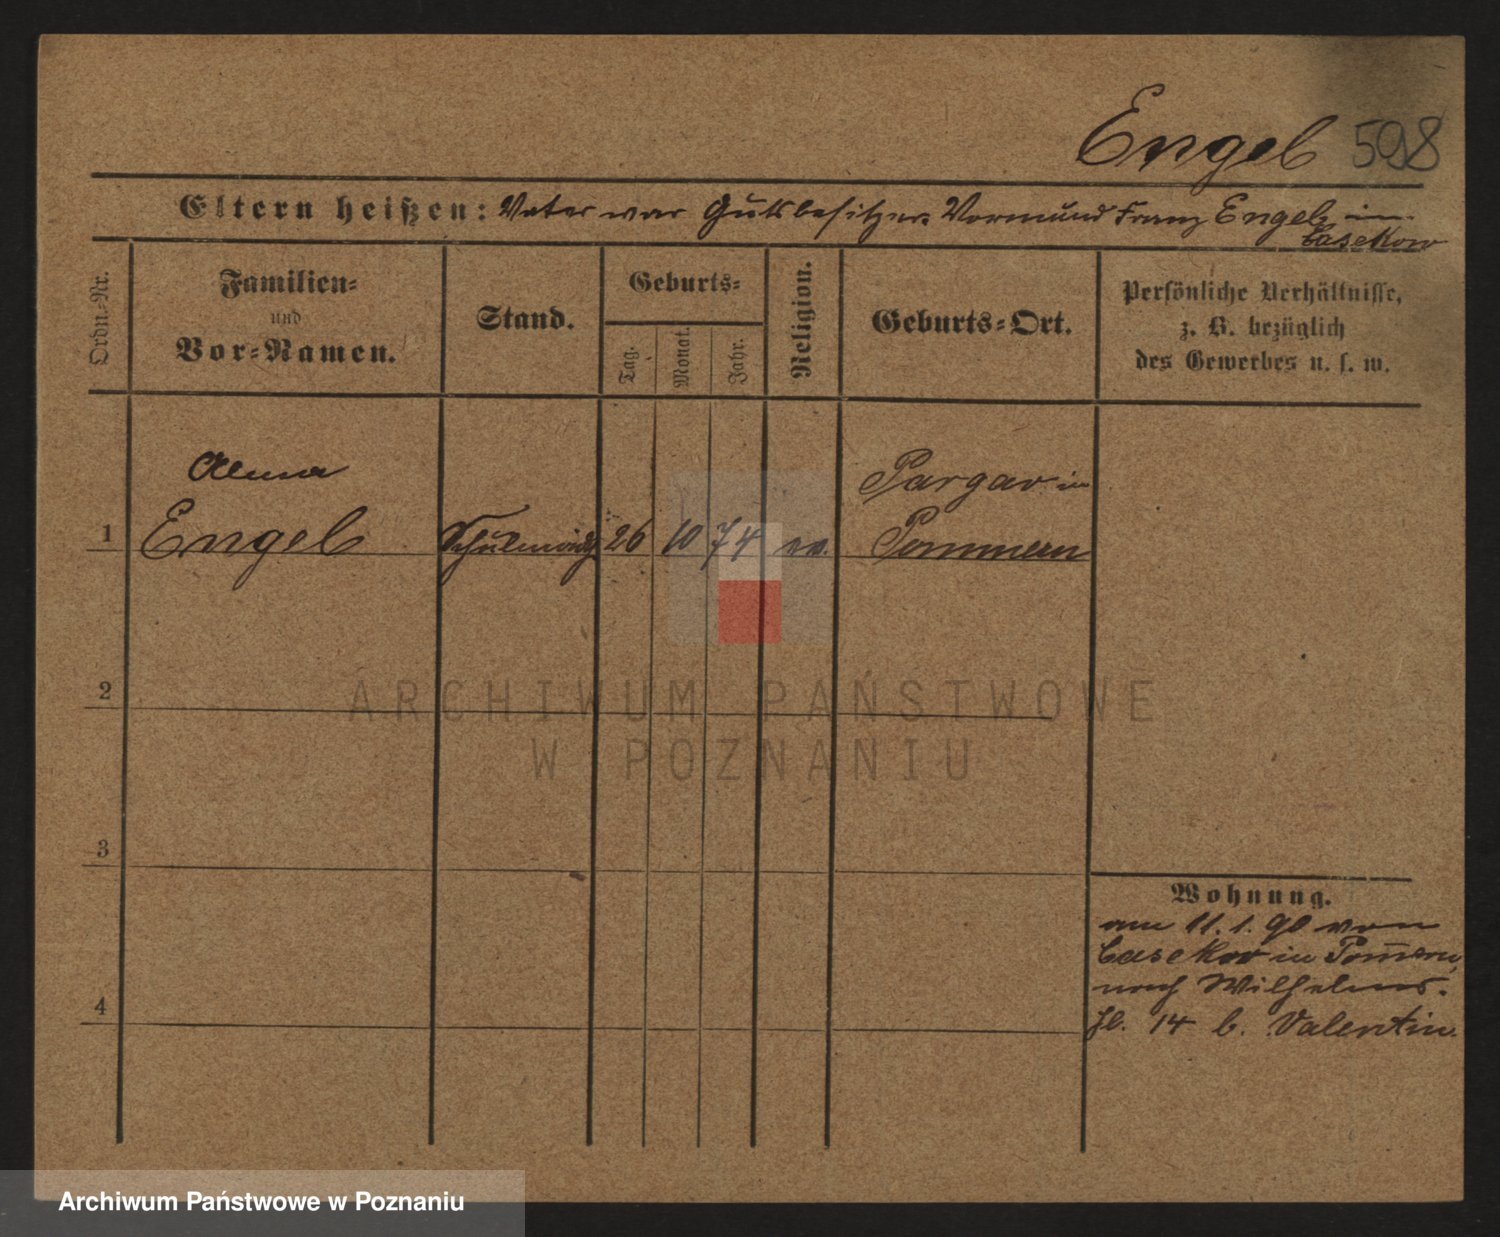 Engel 598
Eltern heißen: Vater war Gutsbesitzer. Vormund Franz Engel in
Casekow
Ordn.-Nr.
Familien-
und
Vor-Namen.
Stand.
Geburts-
Tag.
Monat.
Jahr.
Religion.
Geburts-Ort.
Persönliche Verhältnisse,
z. B. bezüglich
des Gewerbes u. s. w.
Alma
Pargow in
1 Engel 26 10 74 ev. Pommern
2
3
4
Wohnung.
am 11. 1. 90 von
Casekow in Pomern
nach Wilhelms-
pl. 14 b. Valentin.
ARCHIWUM PAŃSTWOWE
W POZNANIU
Archiwum Państwowe w Poznaniu